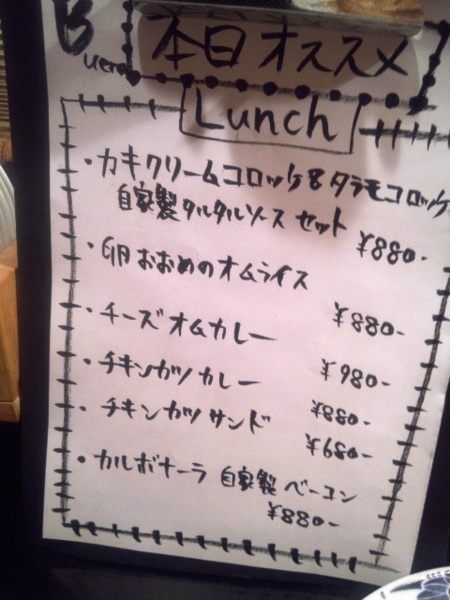 B
本日オススメ
Lunch
・カキクリームコロッケ&タラモコロッケ
自家製タルタルソース セット
¥880-
・卵おおめのオムライス
¥880-
・チーズオムカレー
¥980-
・チキンカツカレー
¥880-
・チキンカツサンド
¥680-
・カルボナーラ 自家製ベーコン
¥880-